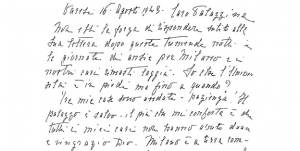 Varese 16 Agosto 1943. Cara Palazzina
Non ebbi la forza di rispondere subito alla
tua lettera dopo queste tremende notti e
le giornate di ansie per Milano e i
nostri cari rimasti laggiù. So che l'
è in piedi ma fino a quando?
Le mie case sono andate - pazienza! Il
palazzo è salvo. Il più che mi conforta è che
tutti i miei cari non hanno avuto danni
e ringrazio Dio. Milano è a terra com-